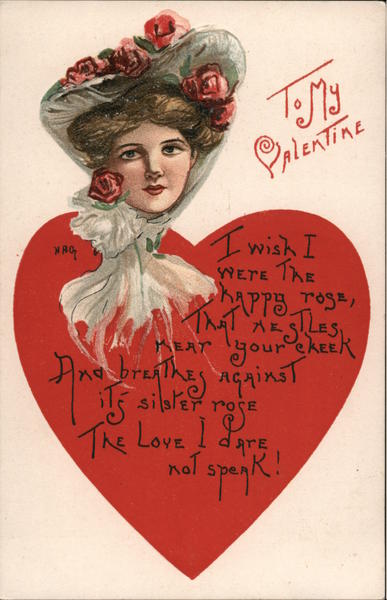 To My
Valentine
HBG
I wish I
were the
happy rose,
That nestles
near your cheek
And breathes against
it's sister rose
The Love I dare
not speak!